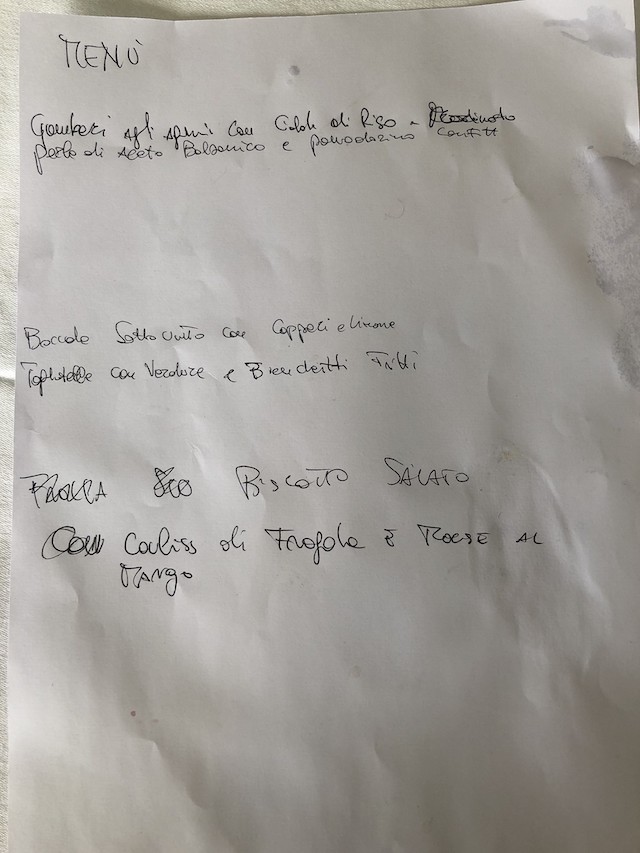 MENÙ
Gamberi agli agrumi con Cialde di Riso
perle di Aceto Balsamico e pomodorino confit
Baccalà Sottovuoto con Capperi e Limone
Tagliatelle con Verdure e Bianchetti Fritti
BISCOTTO SALATO
CON Couliss di Fragole E MOUSE AL
MANGO